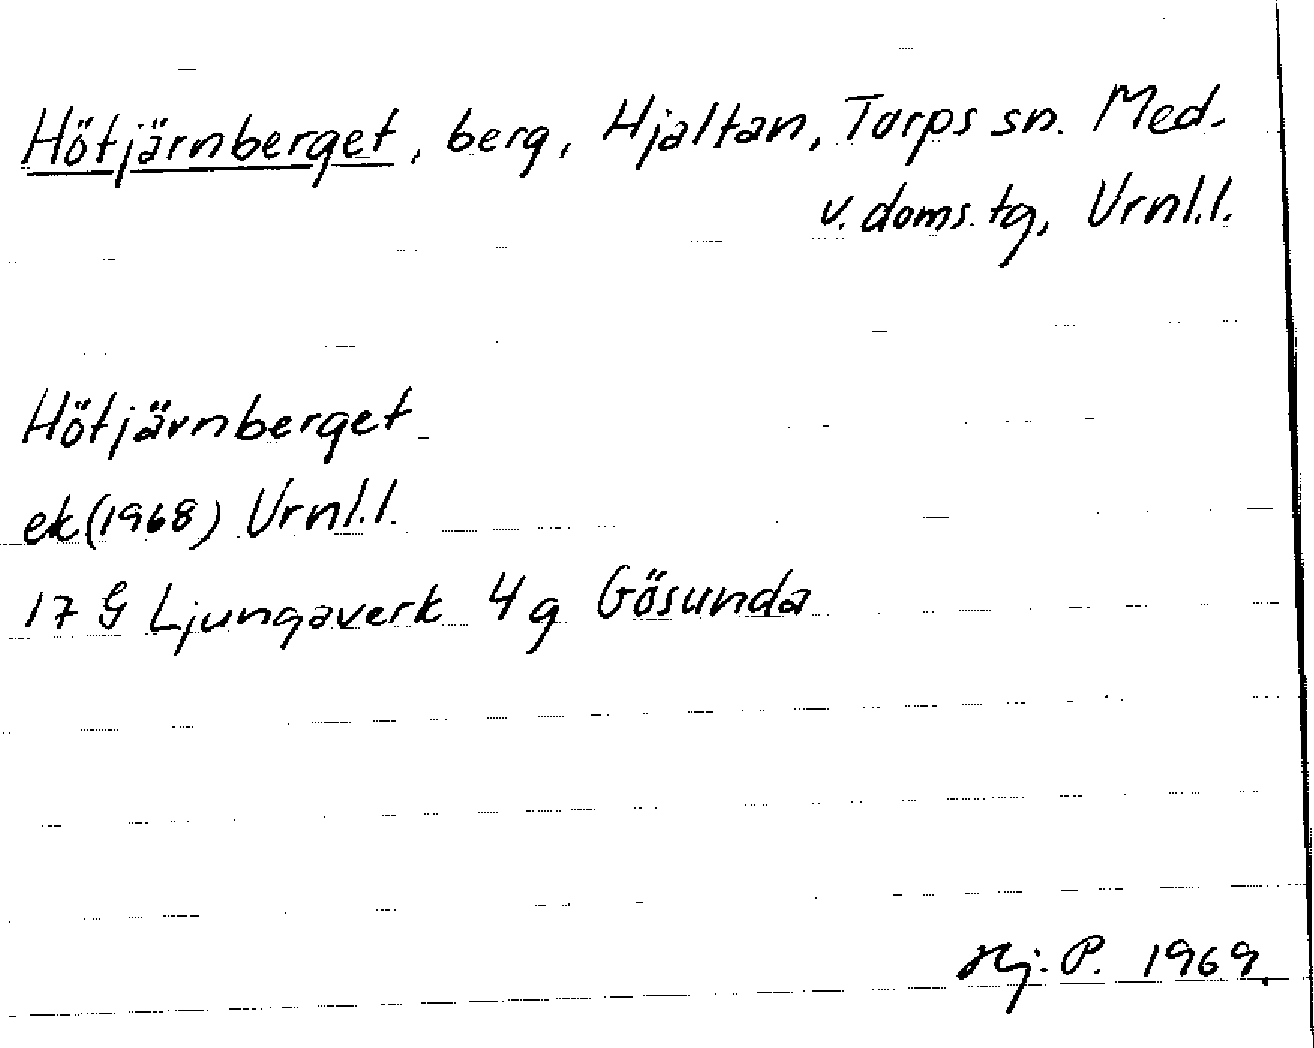 Hötjärnberget, berg, Hjaltan, Torps sn. Med.
v. doms. tg, Vrnl.l.
Hötjärnberget
ek (1968) Vrnl.l.
17 G Ljungaverk 4 g Gösunda
Hj. P. 1969.